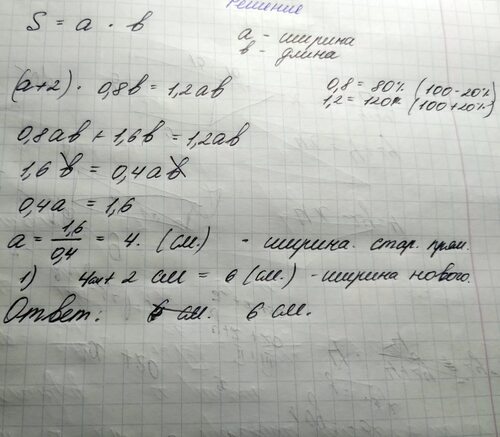 Решение
S = a · в
a - ширина
в - длина
(a+2) · 0,8в = 1,2ав
0,8 = 80% (100-20%)
1,2 = 120% (100+20%)
0,8ав + 1,6в = 1,2ав
1,6в = 0,4ав
0,4a = 1,6
a = 1,6/0,4 = 4. (см.) - ширина. стар. прям.
1) 4см + 2 см = 6 (см.) - ширина нового.
Ответ: 6 см. 6 см.